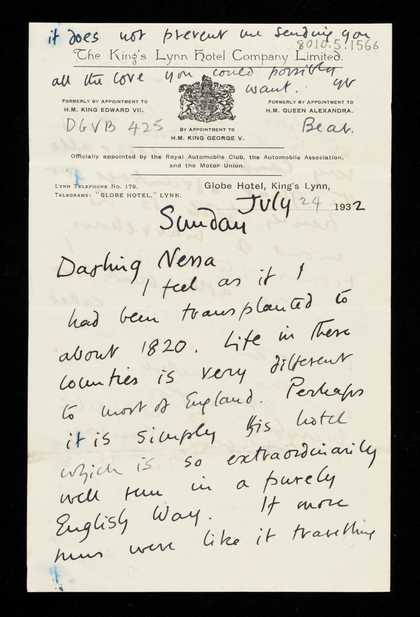 it does not prevent me sending you
8010.5.1566
The King's Lynn Hotel Company Limited.
all the love you could possibly
want. yr
FORMERLY BY APPOINTMENT TO
H.M. KING EDWARD VII.
FORMERLY BY APPOINTMENT TO
H.M. QUEEN ALEXANDRA.
DGVB 425
Bear.
BY APPOINTMENT TO
H.M. KING GEORGE V.
Officially appointed by the Royal Automobile Club, the Automobile Association,
and the Motor Union.
LYNN TELEPHONE No. 179.
TELEGRAMS: "GLOBE HOTEL," LYNN.
Globe Hotel, King's Lynn,
July 24 1932
Sunday
Darling Nessa
I feel as if I
had been transplanted to
about 1820. Life in these
counties is very different
to most of England. Perhaps
it is simply this hotel
which is so extraordinarily
well run in a purely
English way. If more
were like it travelling